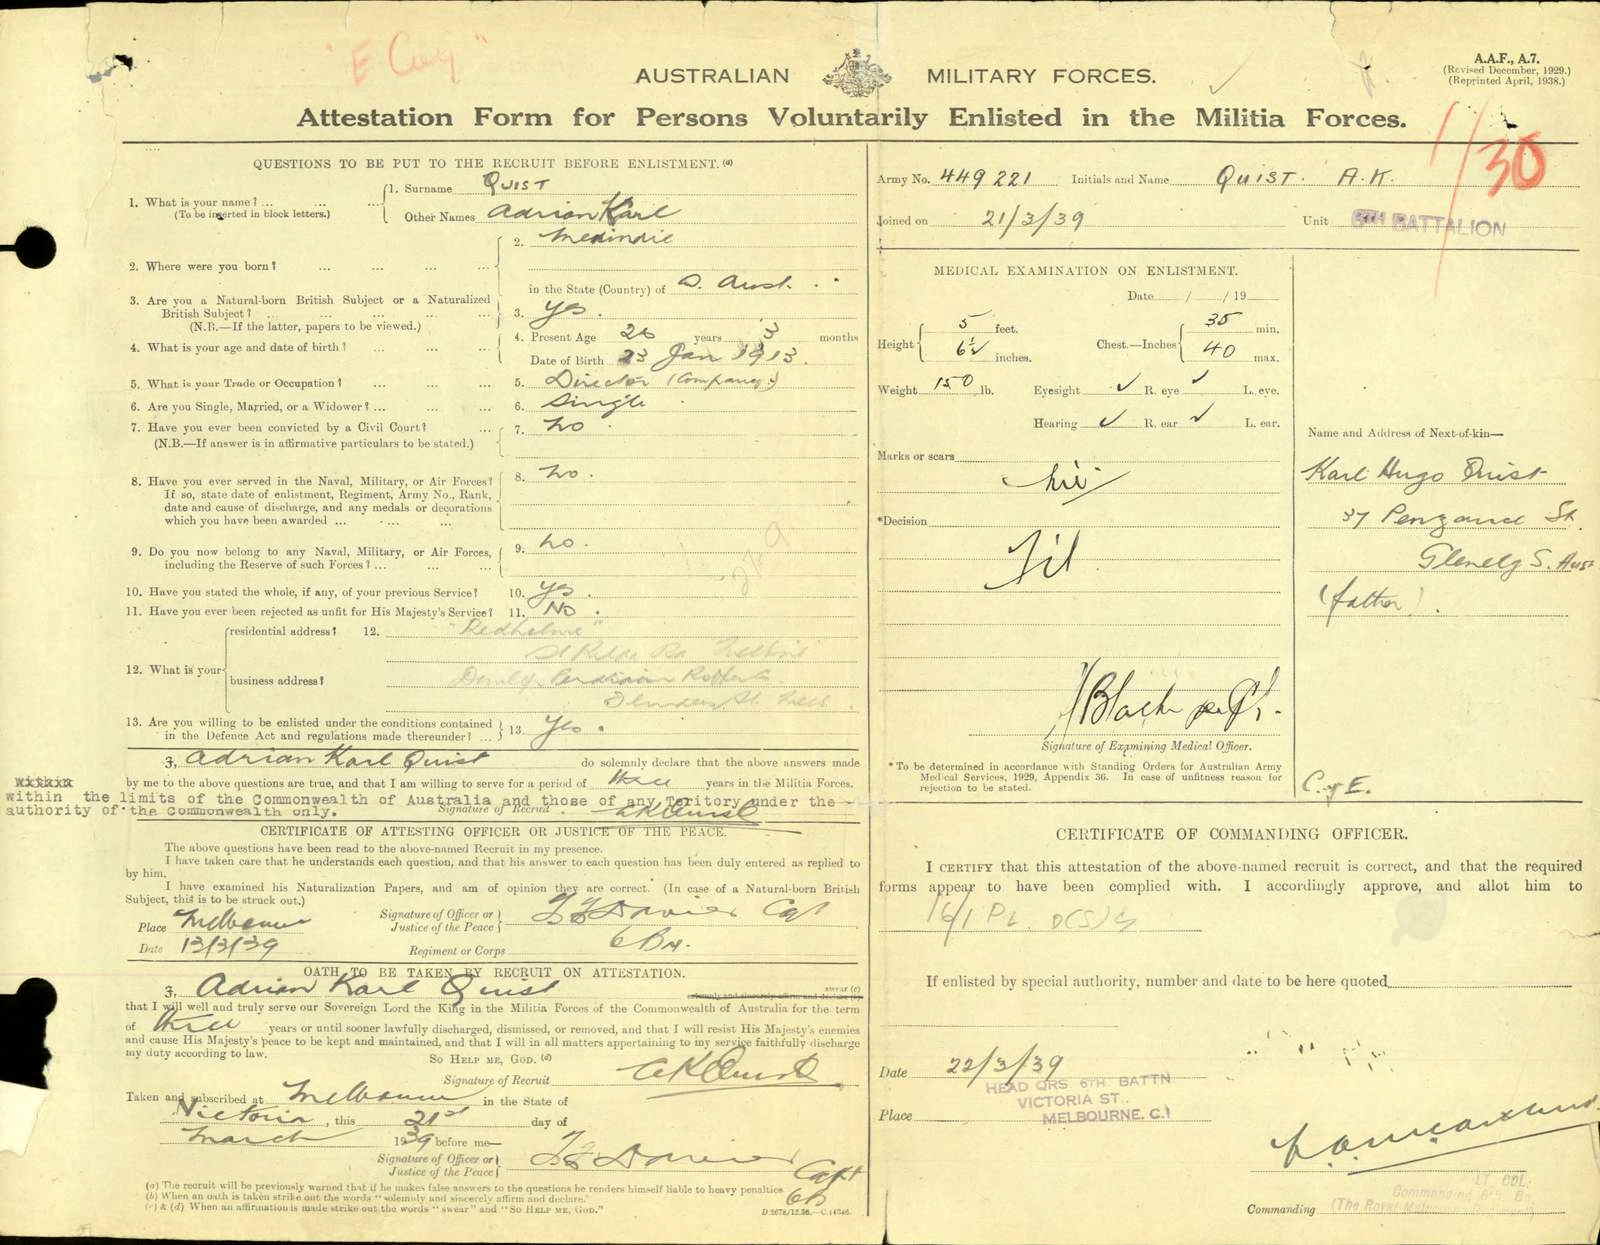 "E Coy"
AUSTRALIAN MILITARY FORCES.
A.A.F., A.7.
(Revised December, 1929.)
(Reprinted April, 1938.)
Attestation Form for Persons Voluntarily Enlisted in the Militia Forces.
1/30
QUESTIONS TO BE PUT TO THE RECRUIT BEFORE ENLISTMENT.(a)
1. What is your name? ... ... ...
(To be inserted in block letters.)
1. Surname QUIST
Other Names Adrian Karl
2. Where were you born? ... ... ... ...
2. Medindie
in the State (Country) of S. Aust.
3. Are you a Natural-born British Subject or a Naturalized
British Subject? ... ... ... ...
(N.B.—If the latter, papers to be viewed.)
3. Yes.
4. What is your age and date of birth? ... ...
4. Present Age 26 years 3 months
Date of Birth 23 Jan 1913
5. What is your Trade or Occupation? ... ... ...
5. Director (Company)
6. Are you Single, Married, or a Widower? ... ... ...
6. Single
7. Have you ever been convicted by a Civil Court? ...
(N.B.—If answer is in affirmative particulars to be stated.)
7. No
8. Have you ever served in the Naval, Military, or Air Forces?
If so, state date of enlistment, Regiment, Army No., Rank,
date and cause of discharge, and any medals or decorations
which you have been awarded ... ... ...
8. No.
9. Do you now belong to any Naval, Military, or Air Forces,
including the Reserve of such Forces? ... ... ...
9. No.
10. Have you stated the whole, if any, of your previous Service? 10. Yes.
11. Have you ever been rejected as unfit for His Majesty's Service? 11. No.
12. What is your
residential address? 12. "Redholme"
St Kilda Rd
business address?
Flinders St.
13. Are you willing to be enlisted under the conditions contained
in the Defence Act and regulations made thereunder? ...
13 Yes.
I, Adrian Karl Quist do solemnly declare that the above answers made
by me to the above questions are true, and that I am willing to serve for a period of three years in the Militia Forces.
within
within the limits of the Commonwealth of Australia and those of any Territory under the
authority of the Commonwealth only.
Signature of Recruit AKQuist
CERTIFICATE OF ATTESTING OFFICER OR JUSTICE OF THE PEACE.
The above questions have been read to the above-named Recruit in my presence.
I have taken care that he understands each question, and that his answer to each question has been duly entered as replied to
by him.
I have examined his Naturalization Papers, and am of opinion they are correct. (In case of a Natural-born British
Subject, this is to be struck out.)
Place Melbourne
Signature of Officer or
Justice of the Peace Davies Capt
Date 13/3/39
Regiment or Corps 6 Bn.
OATH TO BE TAKEN BY RECRUIT ON ATTESTATION.
I, Adrian Karl Quist swear (c)
solemnly and sincerely affirm and declare (b)
that I will well and truly serve our Sovereign Lord the King in the Militia Forces of the Commonwealth of Australia for the term
of three years or until sooner lawfully discharged, dismissed, or removed, and that I will resist His Majesty's enemies
and cause His Majesty's peace to be kept and maintained, and that I will in all matters appertaining to my service faithfully discharge
my duty according to law.
SO HELP ME, GOD.(d)
Signature of Recruit AKQuist
Taken and subscribed at Melbourne in the State of
Victoria, this 21st day of
March 1939 before me—
Signature of Officer or
Justice of the Peace Davies Capt
6 B
(a) The recruit will be previously warned that if he makes false answers to the questions he renders himself liable to heavy penalties.
(b) When an oath is taken strike out the words "solemnly and sincerely affirm and declare."
(c) & (d) When an affirmation is made strike out the words "swear" and "SO HELP ME, GOD."
D 2678/12.36.—C.14346.
Army No. 449221 Initials and Name QUIST. A.K.
Joined on 21/3/39 Unit 6TH BATTALION
MEDICAL EXAMINATION ON ENLISTMENT.
Date / / 19
Height 5 feet.
6½ inches.
Chest.—Inches 35 min.
40 max.
Weight 150 lb. Eyesight ✓ R. eye ✓ L. eye.
Hearing ✓ R. ear ✓ L. ear.
Marks or scars
Nil
*Decision
Fit
Signature of Examining Medical Officer.
*To be determined in accordance with Standing Orders for Australian Army
Medical Services, 1929, Appendix 36. In case of unfitness reason for
rejection to be stated.
Name and Address of Next-of-kin—
Karl Hugo Quist
37 Penzance St.
Glenelg S. Aust
(father).
C of E.
CERTIFICATE OF COMMANDING OFFICER.
I CERTIFY that this attestation of the above-named recruit is correct, and that the required
forms appear to have been complied with. I accordingly approve, and allot him to
16/1 Pl. D(S) Cy
If enlisted by special authority, number and date to be here quoted
Date 22/3/39
Place
HEAD QRS 6TH. BATTN
VICTORIA ST.
MELBOURNE. C.1
LT COL:
Commanding 6th Bn.
Commanding (The Royal Melbourne Regiment)